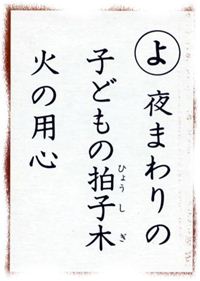 よ 夜まわりの
子どもの拍子木
ひょうしぎ
火の用心